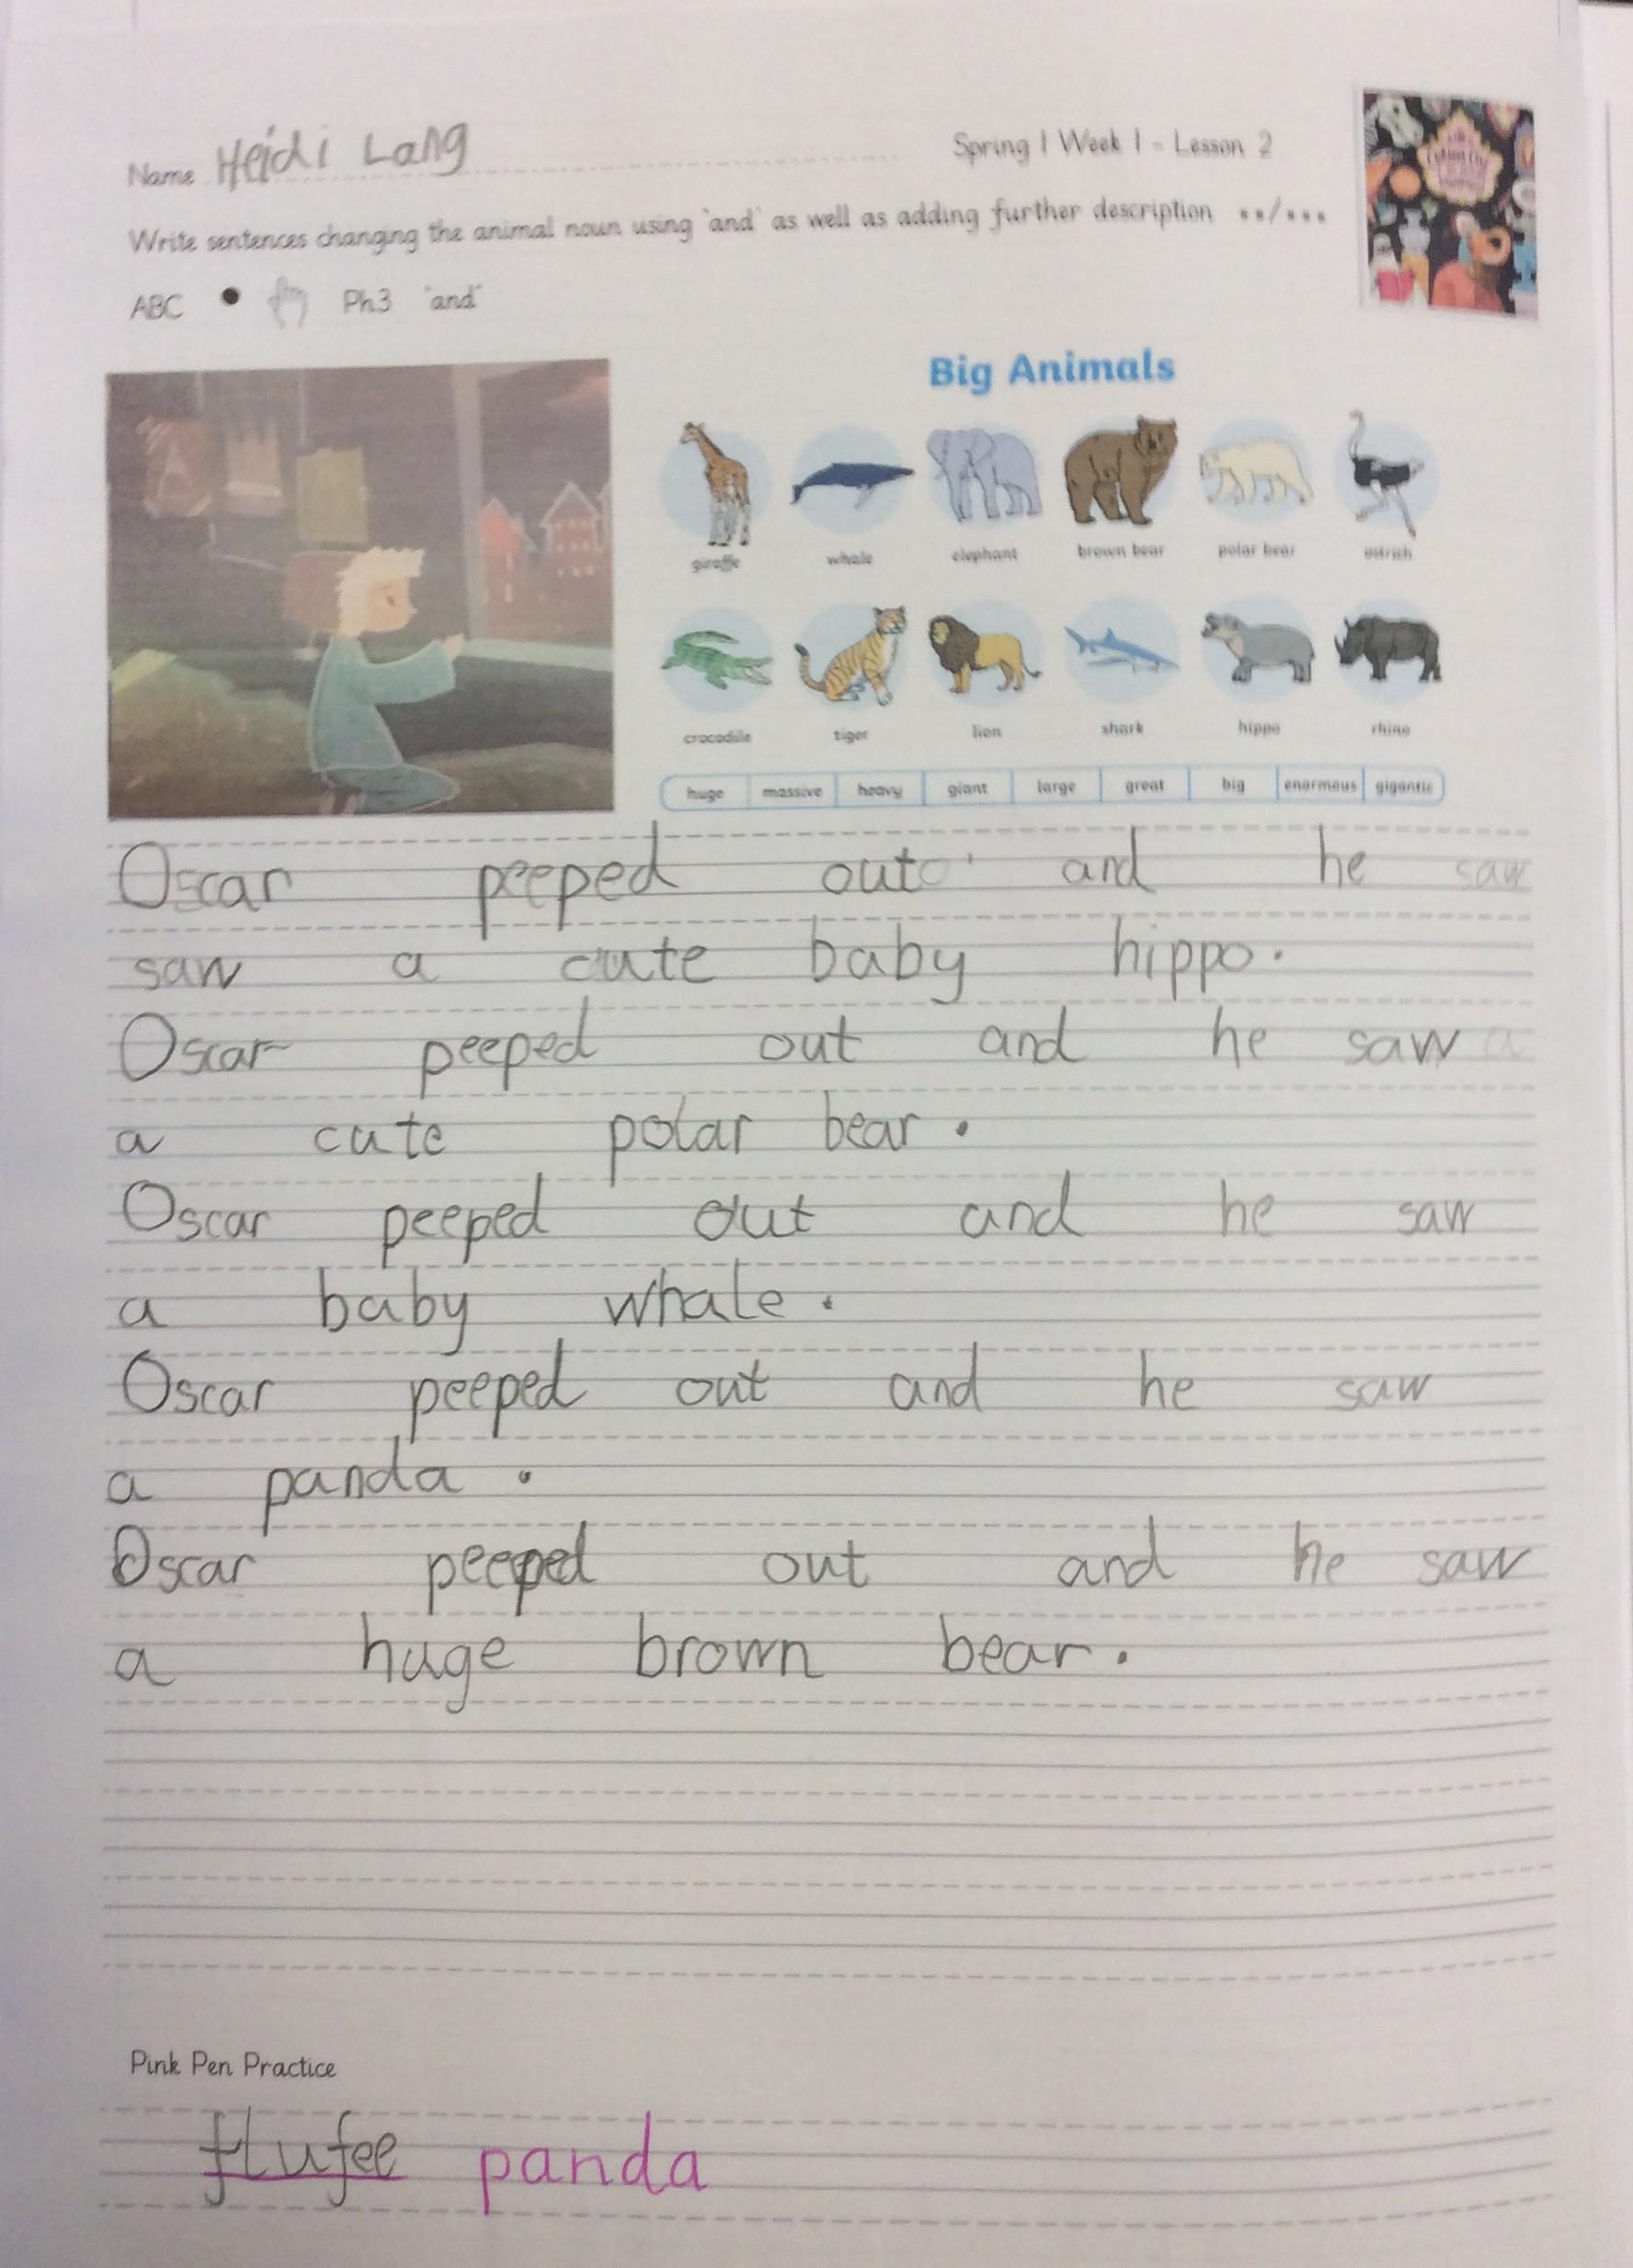 Name Heidi Lang
Spring 1 Week 1 - Lesson 2
Write sentences changing the animal noun using 'and' as well as adding further description **/***
ABC ● Ph3 'and'
Big Animals
giraffe whale elephant brown bear polar bear ostrich
crocodile tiger lion shark hippo rhino
huge massive heavy giant large great big enormous gigantic
Oscar peeped out and he saw
saw a cute baby hippo.
Oscar peeped out and he saw a
a cute polar bear.
Oscar peeped out and he saw
a baby whale.
Oscar peeped out and he saw
a panda.
Oscar peeped out and he saw
a huge brown bear.
Pink Pen Practice
flufee panda